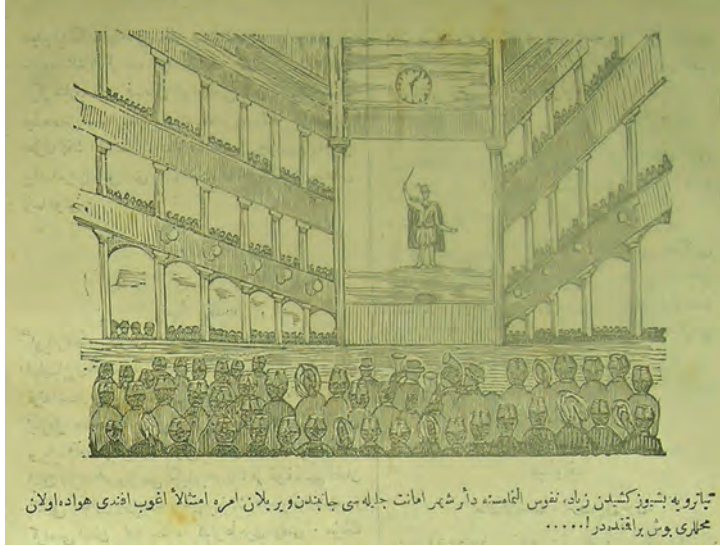 تياترويه بشيوز كشيدن زياده نفوس النمامسنه دائر شهر امانت جليله سى جانبندن ويريلان امره امتثالاً اغوب افندى هواده اولان
محللرى بوش براقنده در!.....